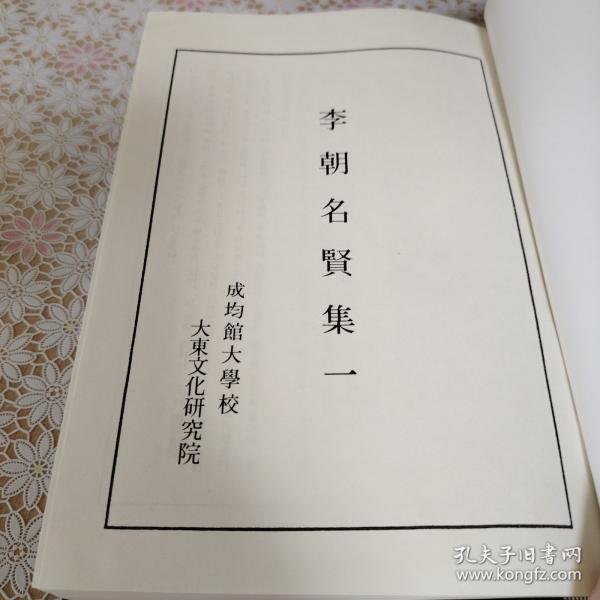 李朝名賢集一
成均館大學校
大東文化研究院
孔夫子旧书网
www.kongfz.com